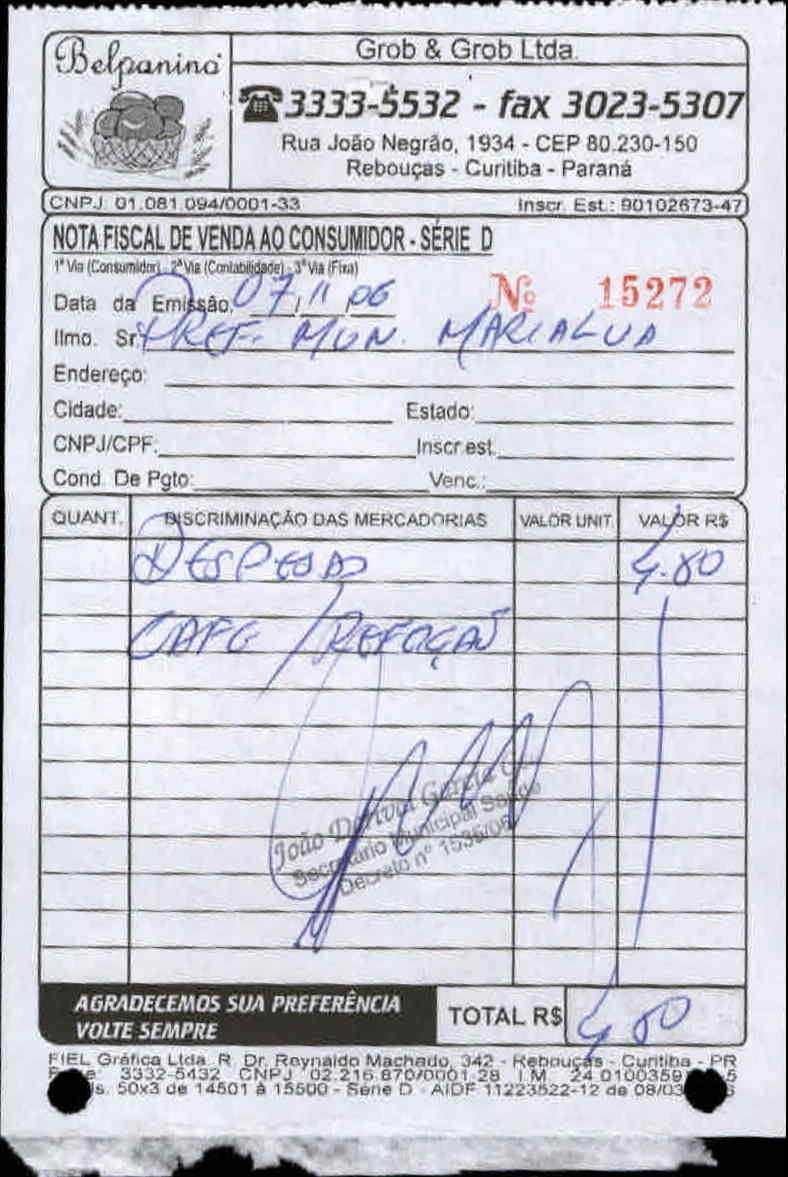 Belpanino
Grob & Grob Ltda.
3333-5532 - fax 3023-5307
Rua João Negrão, 1934 - CEP 80.230-150
Rebouças - Curitiba - Paraná
CNPJ. 01.081.094/0001-33 Inscr. Est.: 90102673-47
NOTA FISCAL DE VENDA AO CONSUMIDOR - SÉRIE D
1ª Via (Consumidor) - 2ª Via (Contabilidade) - 3ª Via (Fixa)
Data da Emissão. 07/11/06 Nº 15272
Ilmo. Sr. PREF. MUN. MARIALVA
Endereço:
Cidade: Estado:
CNPJ/CPF: Inscr.est.
Cond. De Pgto: Venc.:
QUANT. DISCRIMINAÇÃO DAS MERCADORIAS VALOR UNIT. VALOR R$
DESPESAS 4.80
CAFE / REFEIÇAS
João Dorival Garcia
Secretário Municipal Saúde
Decreto nº 1535/06
AGRADECEMOS SUA PREFERÊNCIA
VOLTE SEMPRE
TOTAL R$ 4,80
FIEL Gráfica Ltda. R. Dr. Reynaldo Machado, 342 - Rebouças - Curitiba - PR
3332-5432 CNPJ 02.216.870/0001-28 I.M. 24.0100359
50x3 de 14501 à 15500 - Série D - AIDF 11223522-12 de 08/03